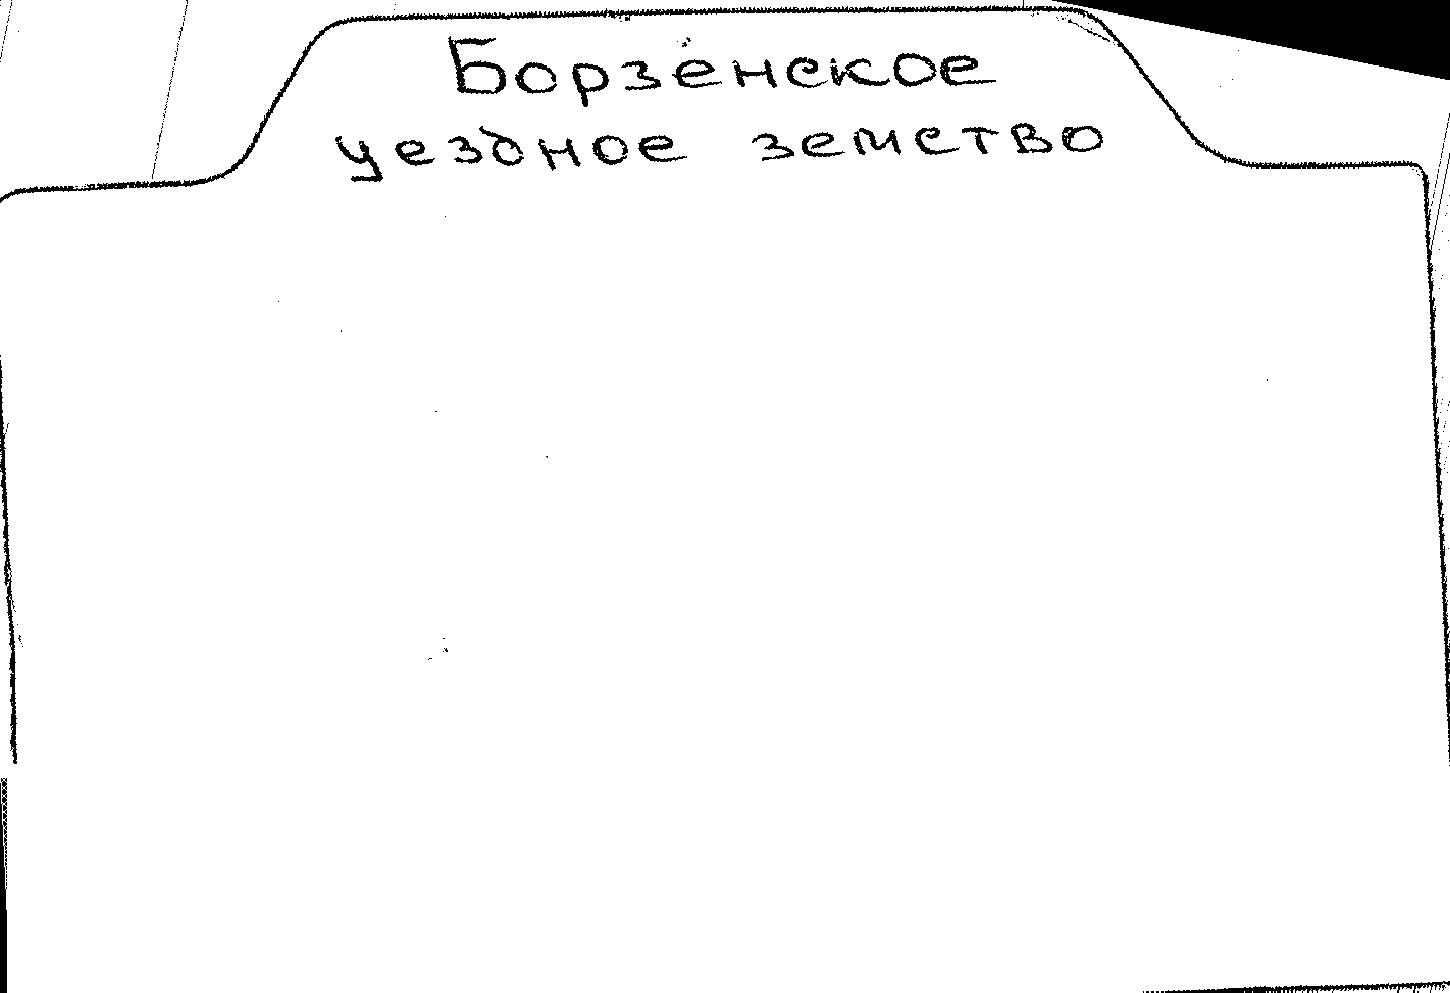 Борзенское
уездное земство